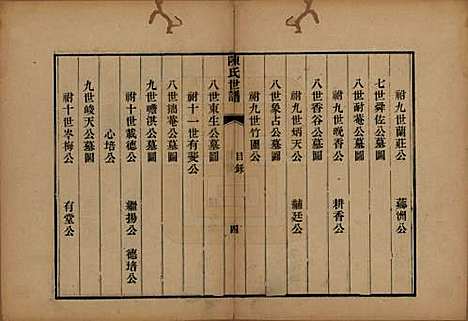 祔九世蘭莊公　藕洲公
七世舜佐公墓圖
八世耐菴公墓圖
祔九世晚香公　耕香公
八世香谷公墓圖
祔九世炳天公　蘭廷公
八世象占公墓圖
祔九世竹園公
陳氏世譜　目錄　四
八世東生公墓圖
祔十一世有斐公
八世拙菴公墓圖
九世瞻淇公墓圖
祔十世載德公　繼揚公　德培公
心培公
九世峻天公墓圖
祔十世岑梅公　有堂公